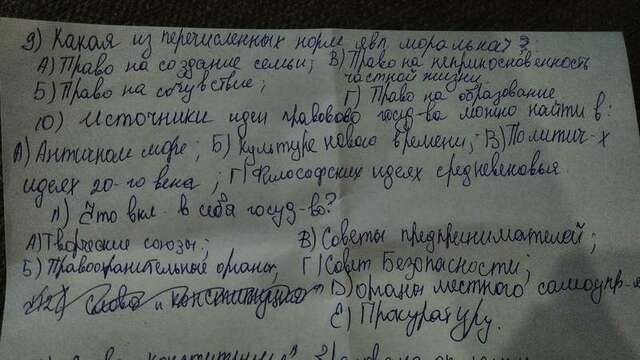 9) Какая из перечисленных норм явл. моральная?:
А) Право на создание семьи; В) Право на неприкосновенность частной жизни.
Б) Право на сочувствие; Г) Право на образование
10) Источники идеи правового госуд-ва можно найти в:
А) Античном мире; Б) Культуре нового времени; В) Политич-х
идеях 20-го века; Г) Философских идеях средневековья
11) Что вкл. в себя госуд-во?
А) Творческие союзы; В) Советы предпринимателей;
Б) Правоохранительные органы; Г) Совет Безопасности;
12) Слово и конституция Д) органы местного самоупр-я
Е) Прокуратуру.